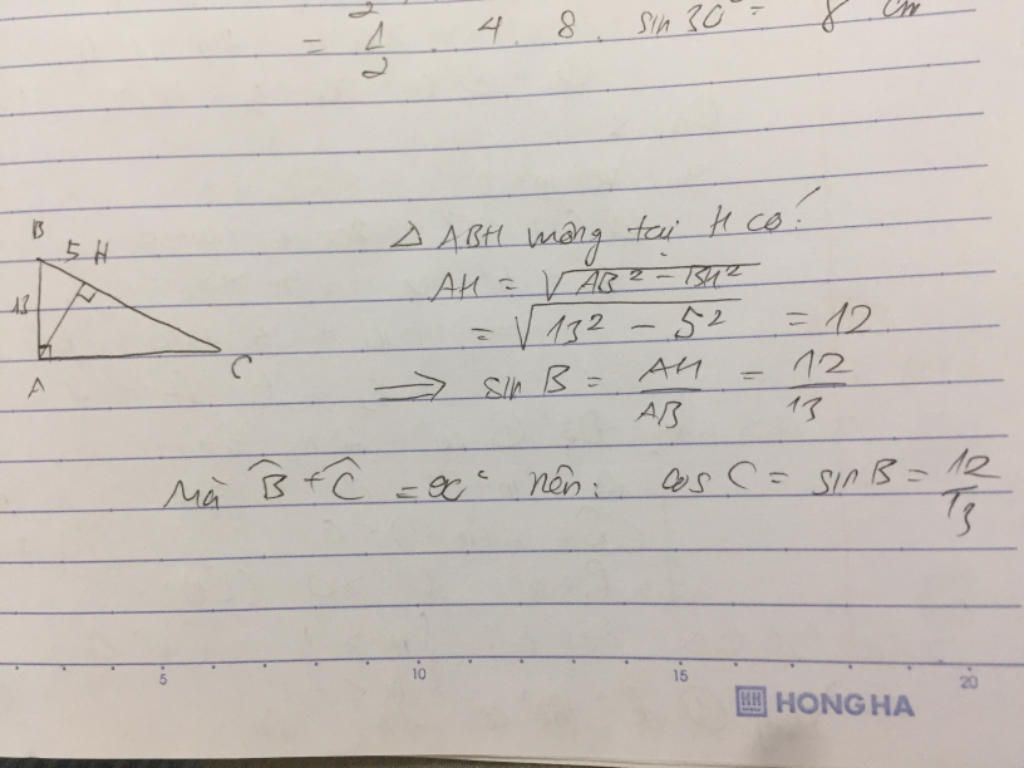 2
= 1/2 . 4 . 8 . sin 30° = 8 cm
B
5 H
13
A
C
Δ ABH vuông tại H có:
AH = √(AB² - BH²)
= √(13² - 5²) = 12
⟹ sin B = AH/AB = 12/13
Mà B̂ + Ĉ = 90° nên: cos C = sin B = 12/13
5 10 15 20
HH HONG HA